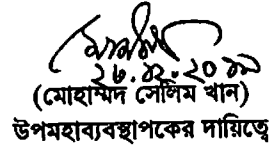 ২৬.১২.২০১৯
(মোহাম্মদ সেলিম খান)
উপমহাব্যবস্থাপকের দায়িত্বে